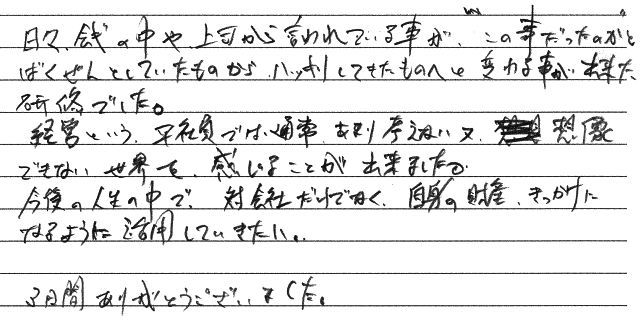 日々、銭の中や、上司から言われている事が、"この事だったのか"と
ばくぜんとしていたものから、ハッキリしてきたものへと変わる事が出来た
研修でした。
経営という、平社員では、通常、あまり考えない又、想像
できない世界を、感じることが出来ました。
今後の人生の中で、対会社だけでなく、自身の財産、きっかけに
なるように活用していきたい。
3日間ありがとうございました。